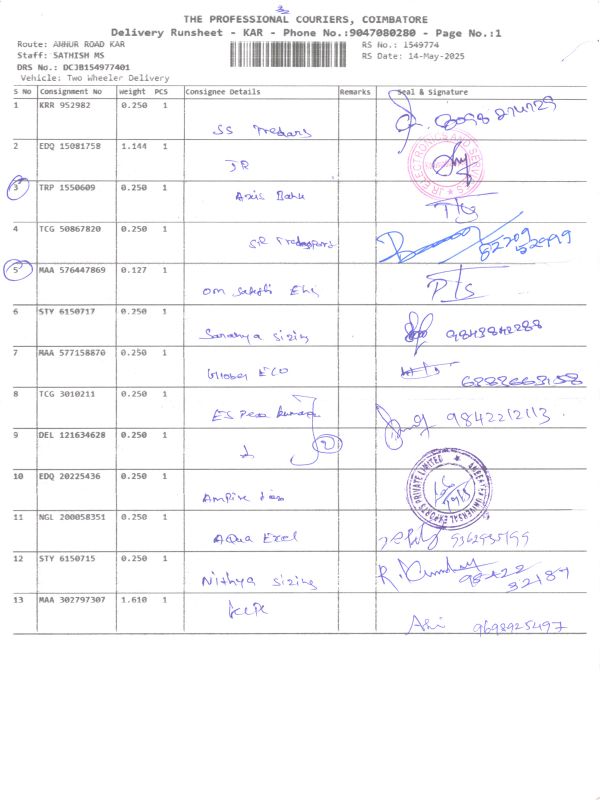 THE PROFESSIONAL COURIERS, COIMBATORE
Delivery Runsheet - KAR - Phone No.:9047080280 - Page No.:1
Route: ANNUR ROAD KAR RS No.: 1549774
Staff: SATHISH MS RS Date: 14-May-2025
DRS No.: DCJB154977401
Vehicle: Two Wheeler Delivery
S No Consignment No Weight PCS Consignee Details Remarks Seal & Signature
1 KRR 952982 0.250 1
SS Traders
2 EDQ 15081758 1.144 1
JR
JR ELECTRONICS AND SERVICES
3 TRP 1550609 0.250 1
Axis Bank
4 TCG 50867820 0.250 1
SR
5 MAA 576447869 0.127 1
Om Sakthi
PTS
6 STY 6150717 0.250 1
Saranya Sizing 9843842288
7 MAA 577158870 0.250 1
ECO
8 TCG 3010211 0.250 1
ES 9842212113
9 DEL 121634628 0.250 1
2
10 EDQ 20225436 0.250 1
UNIVERSAL EXPORTS PRIVATE LIMITED
11 NGL 200058351 0.250 1
Aqua Excel
12 STY 6150715 0.250 1
Nithya Sizing
13 MAA 302797307 1.610 1
9698925497